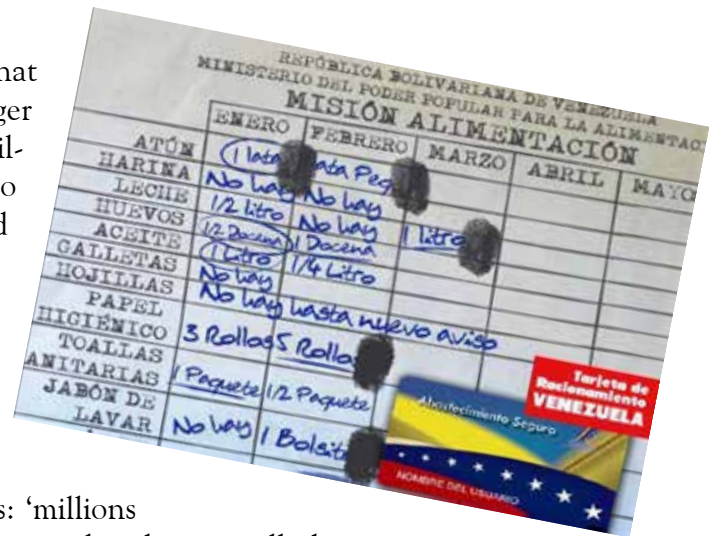 hat
ger
il-
o
d
REPÚBLICA BOLIVARIANA DE VENEZUELA
MINISTERIO DEL PODER POPULAR PARA LA ALIMENTAC
MISIÓN ALIMENTACIÓN
ENERO FEBRERO MARZO ABRIL MAYO
ATÚN 1 lata lata Peq
HARINA No hay No hay
LECHE 1/2 litro No hay 1 litro
HUEVOS 1/2 Docena 1 Docena
ACEITE 1 Litro 1/4 Litro
GALLETAS No hay
HOJILLAS No hay hasta nuevo aviso
PAPEL
HIGIÉNICO 3 Rollos 5 Rollos
TOALLAS
ANITARIAS 1 Paquete 1/2 Paquete
JABÓN DE
LAVAR No hay 1 Bolsit
Tarjeta de
Racionamiento
VENEZUELA
Abastecimiento Seguro
NOMBRE DEL USUARIO
s: ‘millions